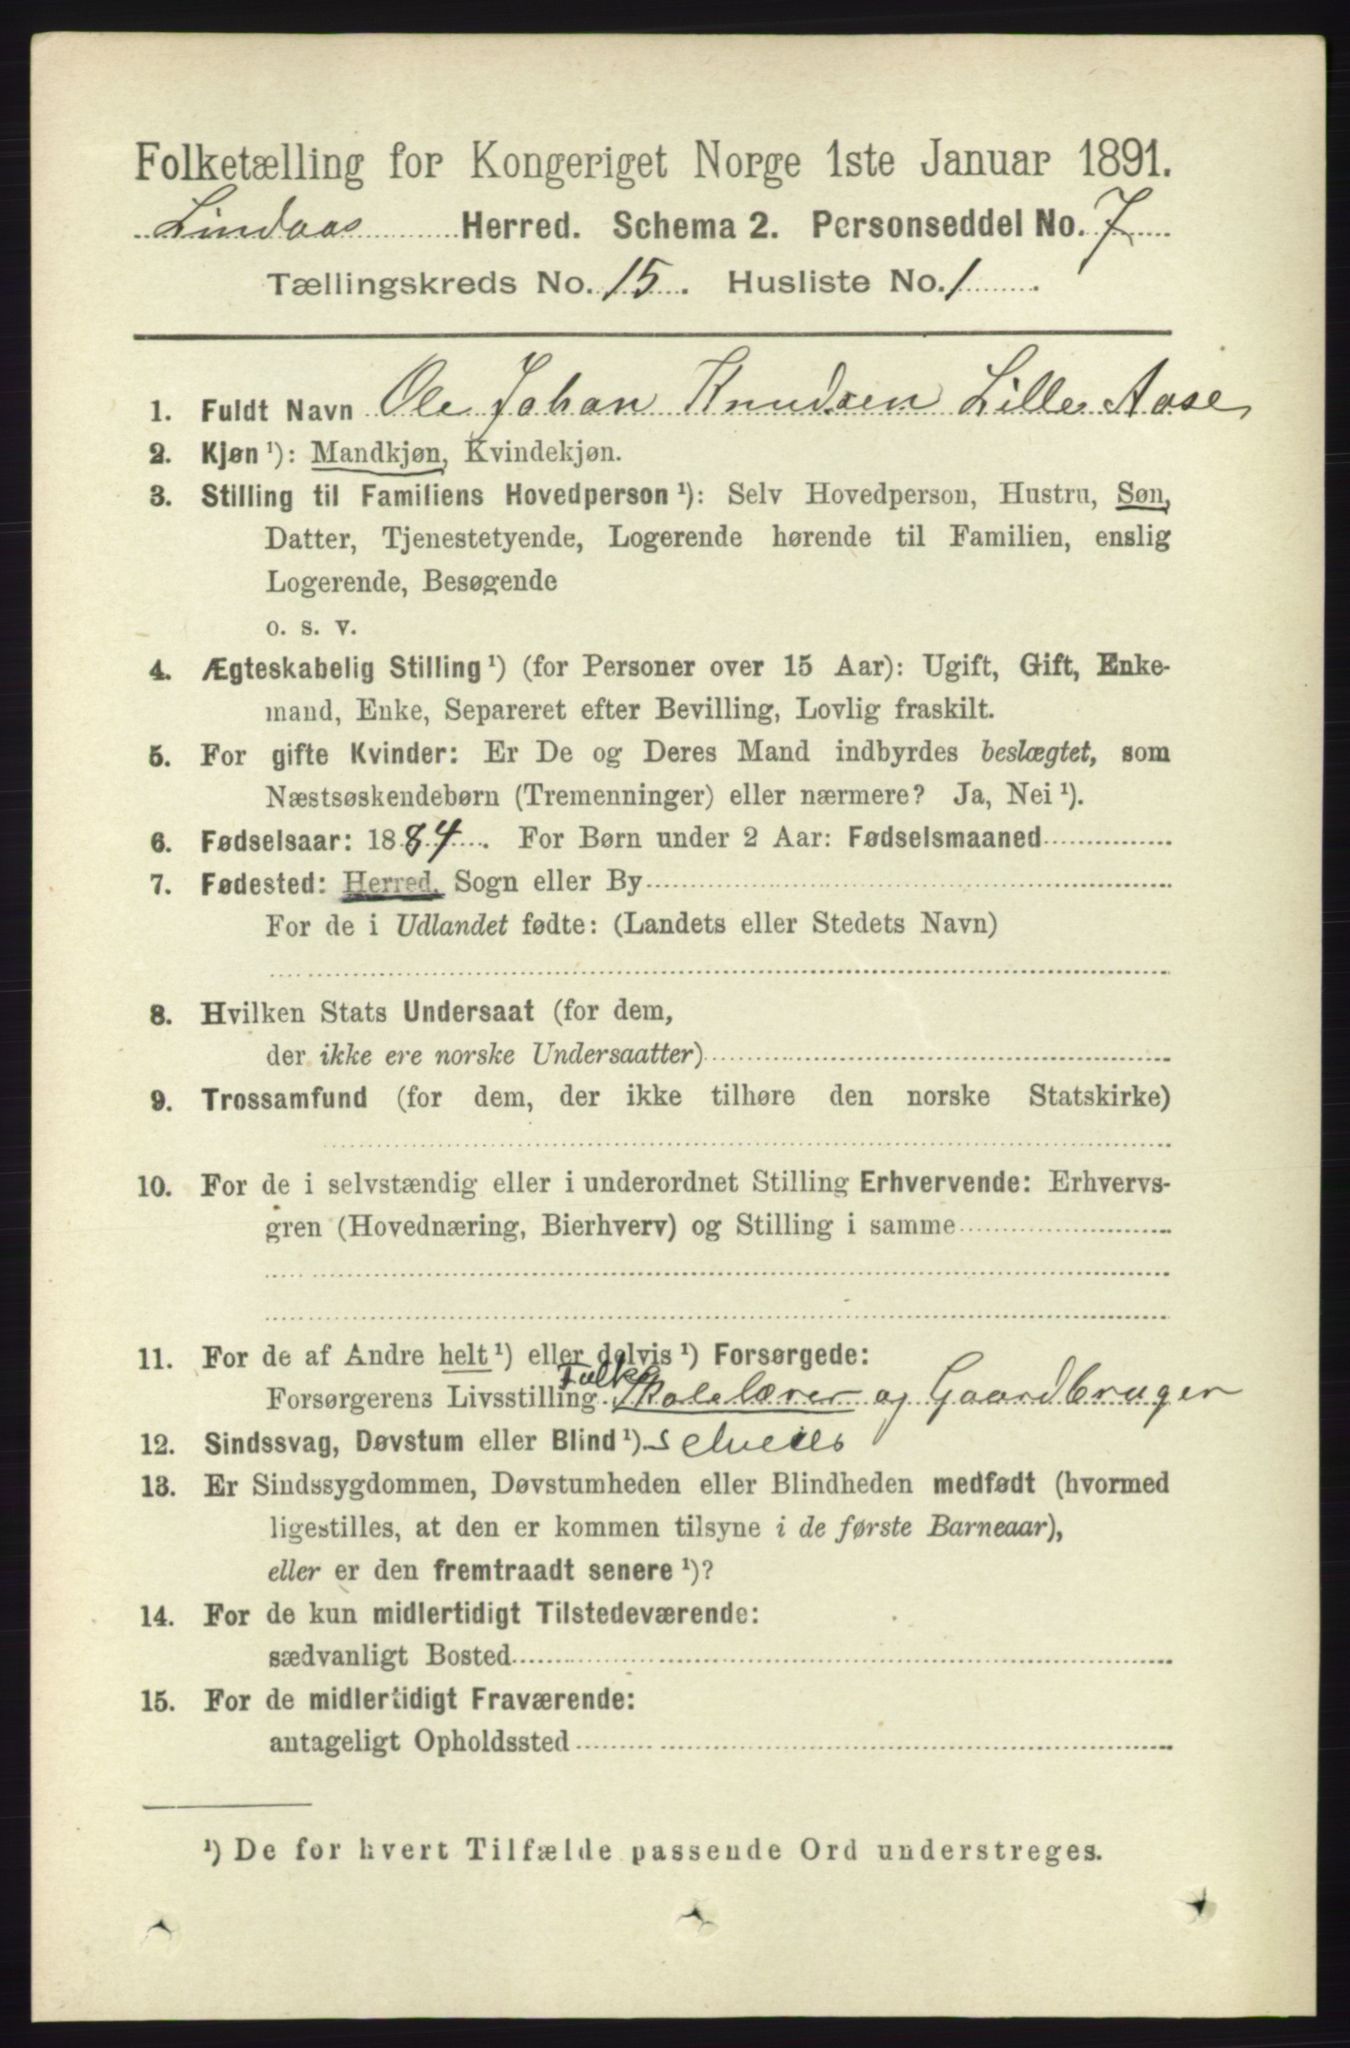 Folketælling for Kongeriget Norge 1ste Januar 1891.
Lindaas Herred. Schema 2. Personseddel No. 7
Tællingskreds No. 15. Husliste No. 1.
1. Fuldt Navn Ole Johan Knudsen Lille Aase
2. Kjøn ¹): Mandkjøn, Kvindekjøn.
3. Stilling til Familiens Hovedperson ¹): Selv Hovedperson, Hustru, Søn,
Datter, Tjenestetyende, Logerende hørende til Familien, enslig
Logerende, Besøgende
o. s. v.
4. Ægteskabelig Stilling ¹) (for Personer over 15 Aar): Ugift, Gift, Enke-
mand, Enke, Separeret efter Bevilling, Lovlig fraskilt.
5. For gifte Kvinder: Er De og Deres Mand indbyrdes beslægtet, som
Næstsøskendebørn (Tremenninger) eller nærmere? Ja, Nei ¹).
6. Fødselsaar: 1884. For Børn under 2 Aar: Fødselsmaaned
7. Fødested: Herred, Sogn eller By
For de i Udlandet fødte: (Landets eller Stedets Navn)
8. Hvilken Stats Undersaat (for dem,
der ikke ere norske Undersaatter)
9. Trossamfund (for dem, der ikke tilhøre den norske Statskirke)
10. For de i selvstændig eller i underordnet Stilling Erhvervende: Erhvervs-
gren (Hovednæring, Bierhverv) og Stilling i samme
11. For de af Andre helt ¹) eller delvis ¹) Forsørgede:
Folke
Forsørgerens Livsstilling Skolelærer og Gaardbruger
12. Sindssvag, Døvstum eller Blind ¹).
13. Er Sindssygdommen, Døvstumheden eller Blindheden medfødt (hvormed
ligestilles, at den er kommen tilsyne i de første Barneaar),
eller er den fremtraadt senere ¹)?
14. For de kun midlertidigt Tilstedeværende:
sædvanligt Bosted
15. For de midlertidigt Fraværende:
antageligt Opholdssted
¹) De for hvert Tilfælde passende Ord understreges.